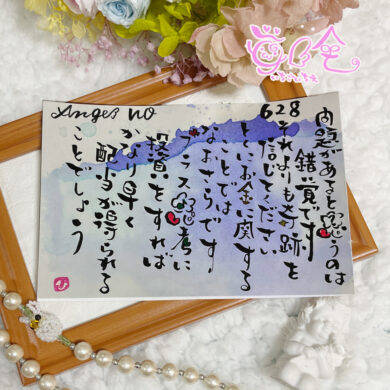 Angel NO 628
問題があると思うのは
錯覚です
それよりも奇跡を
信じてください
とくにお金に関する
ことでは
なおさらです
プラス思考に
投資をすれば
かなり早く
配当が得られる
ことでしょう
ひ